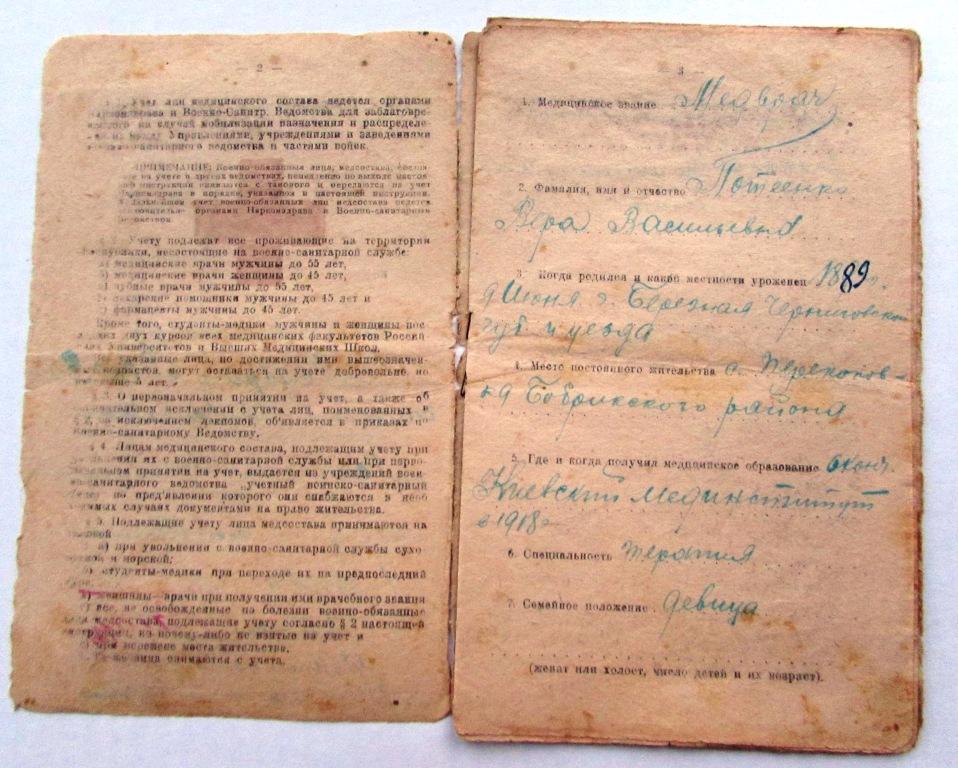 — 2 —
Учет лиц медицинского состава ведется органами
и Военно-Санитр. Ведомства для заблаговре-
на случай мобилизации назначения и распределе-
между Управлениями, учреждениями и заведениями
ведомства и частями войск.
ПРИМЕЧАНИЕ: Военно-обязанные лица, медсостава,
на учете в других ведомствах, немедленно по выходе
инструкции снимаются с такового и передаются на учет
в порядке, указанном в настоящей инструкции.
учет военно-обязанных лиц медсостава ведется
органами Наркомздрава и Военно-санитарным
Учету подлежат все проживающие на территории
несостоящие на военно-санитарной службе:
медицинские врачи мужчины до 55 лет,
б) медицинские врачи женщины до 45 лет,
зубные врачи мужчины до 55 лет,
лекарские помощники мужчины до 45 лет и
фармацевты мужчины до 45 лет.
Кроме того, студенты-медики мужчины и женщины пос-
двух курсов всех медицинских факультетов Россий
Университетов и Высших Медицинских Школ.
указанные лица, по достижении ими вышеозначен-
возрастов, могут оставаться на учете добровольно, но
5 лет.
§ 3. О первоначальном принятии на учет, а также об
исключении с учета лиц, поименованных в
§ 2, за исключением лекпомов, об'является в приказах по
Военно-санитарному Ведомству.
§ 4. Лицам медицинского состава, подлежащим учету при
их с военно-санитарной службы или при перво-
принятии на учет, выдается из учреждений воен-
санитарного ведомства „учетный воинско-санитарный
по пред'явлении которого они снабжаются в необ
случаях документами на право жительства.
§ 5. Подлежащие учету лица медсостава принимаются на
а) при увольнении с военно-санитарной службы сухо
и морской;
б) студенты-медики при переходе их на предпоследний
в) женщины—врачи при получении ими врачебного звания
все, не освобожденные по болезни военно-обязанные
медсостава, подлежащие учету согласно § 2 настоящей
инструкции, но почему-либо не взятые на учет и
при перемене места жительства.
снимаются с учета.
— 3 —
1. Медицинское звание Медврач
2. Фамилия, имя и отчество Потеенко
Вера Васильевна
3. Когда родился и какой местности уроженец 1889 г.
9 Июня г. Березная Черниговской
губ. и уезда
4. Место постоянного жительства с. Перекопов-
ка Бобрикского района
5. Где и когда получил медицинское образование оконч.
Киевский мединститут
в 1918 г
6. Специальность терапия
7. Семейное положение девица
(женат или холост, число детей и их возраст).